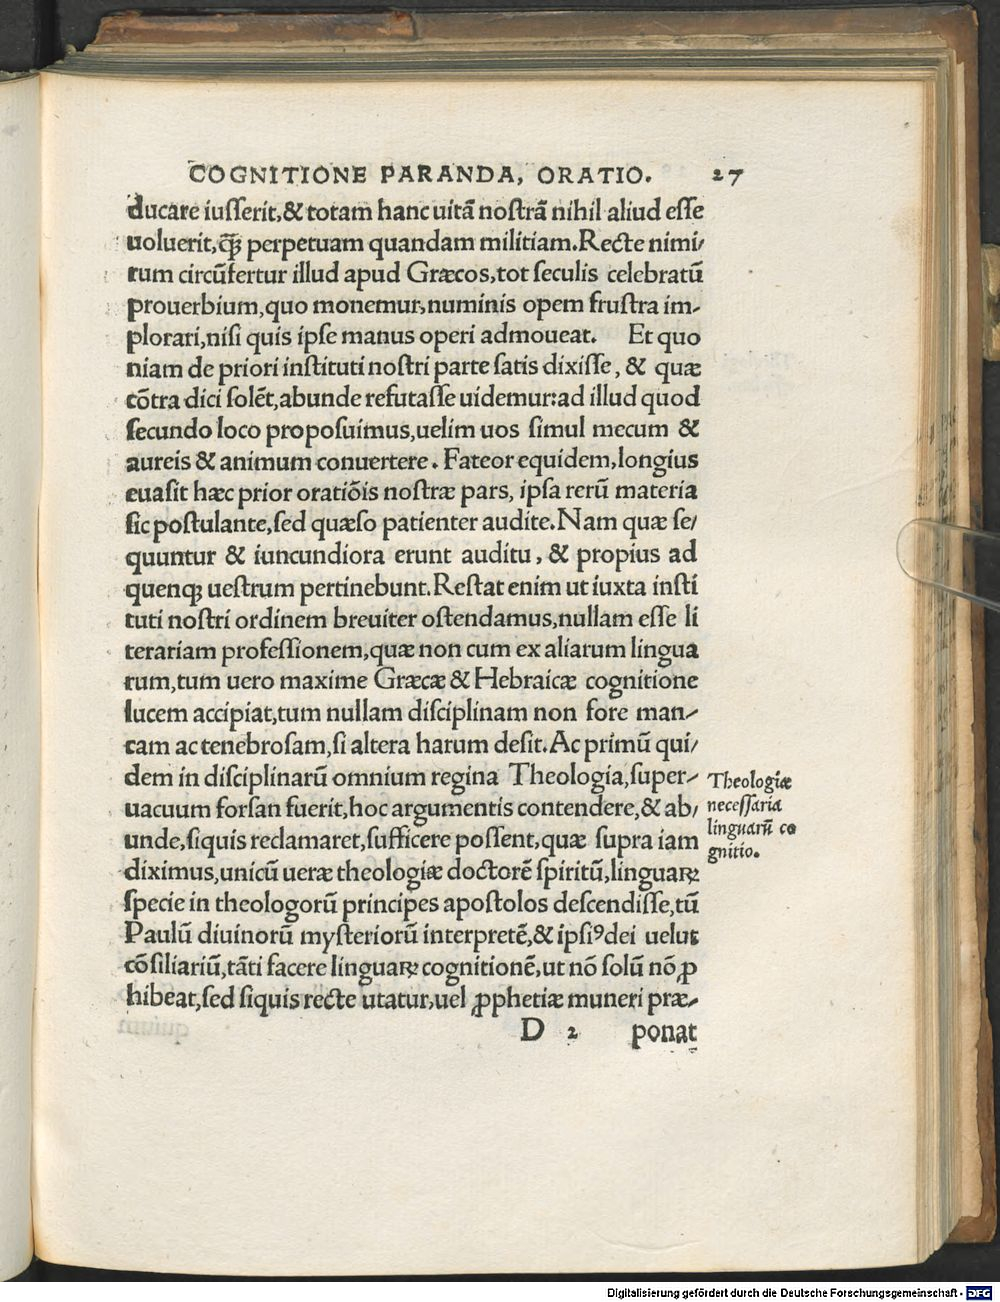 COGNITIONE PARANDA, ORATIO. 27
ducare iuſſerit,& totam hanc uitā noſtrā nihil aliud eſſe
uoluerit,q̃ꝫ perpetuam quandam militiam. Recte nimi/
rum circūfertur illud apud Græcos,tot ſeculis celebratū
prouerbium,quo monemur,numinis opem fruſtra im-
plorari,niſi quis ipſe manus operi admoueat. Et quo
niam de priori inſtituti noſtri parte ſatis dixiſſe, & quæ
cōtra dici ſolēt,abunde refutaſſe uidemur:ad illud quod
ſecundo loco propoſuimus,uelim uos ſimul mecum &
aureis & animum conuertere. Fateor equidem,longius
euaſit hæc prior oratiōis noſtræ pars, ipſa rerū materia
ſic poſtulante,ſed quæſo patienter audite. Nam quæ ſe/
quuntur & iuncundiora erunt auditu, & propius ad
quenqꝫ ueſtrum pertinebunt. Reſtat enim ut iuxta inſti
tuti noſtri ordinem breuiter oſtendamus,nullam eſſe li
terariam profeſſionem,quæ non cum ex aliarum lingua
rum,tum uero maxime Græcæ & Hebraicæ cognitione
lucem accipiat,tum nullam diſciplinam non fore man-
cam ac tenebroſam,ſi altera harum deſit. Ac primū qui/
dem in diſciplinarū omnium regina Theologia,ſuper-
uacuum forſan fuerit,hoc argumentis contendere,& ab/
unde,ſiquis reclamaret,ſufficere poſſent,quæ ſupra iam
diximus,unicū ueræ theologiæ doctorē ſpiritū,linguaꝝ
ſpecie in theologorū principes apoſtolos deſcendiſſe,tū
Paulū diuinorū myſteriorū interpretē,& ipſiꝰ dei uelut
cōſiliariū,tāti facere linguaꝝ cognitionē,ut nō ſolū nō ꝓ
hibeat,ſed ſiquis recte utatur,uel ꝓphetiæ muneri præ-
D 2 ponat
Theologiæ
neceſſaria
linguarū co
gnitio.
Digitalisierung gefördert durch die Deutsche Forschungsgemeinschaft - DFG